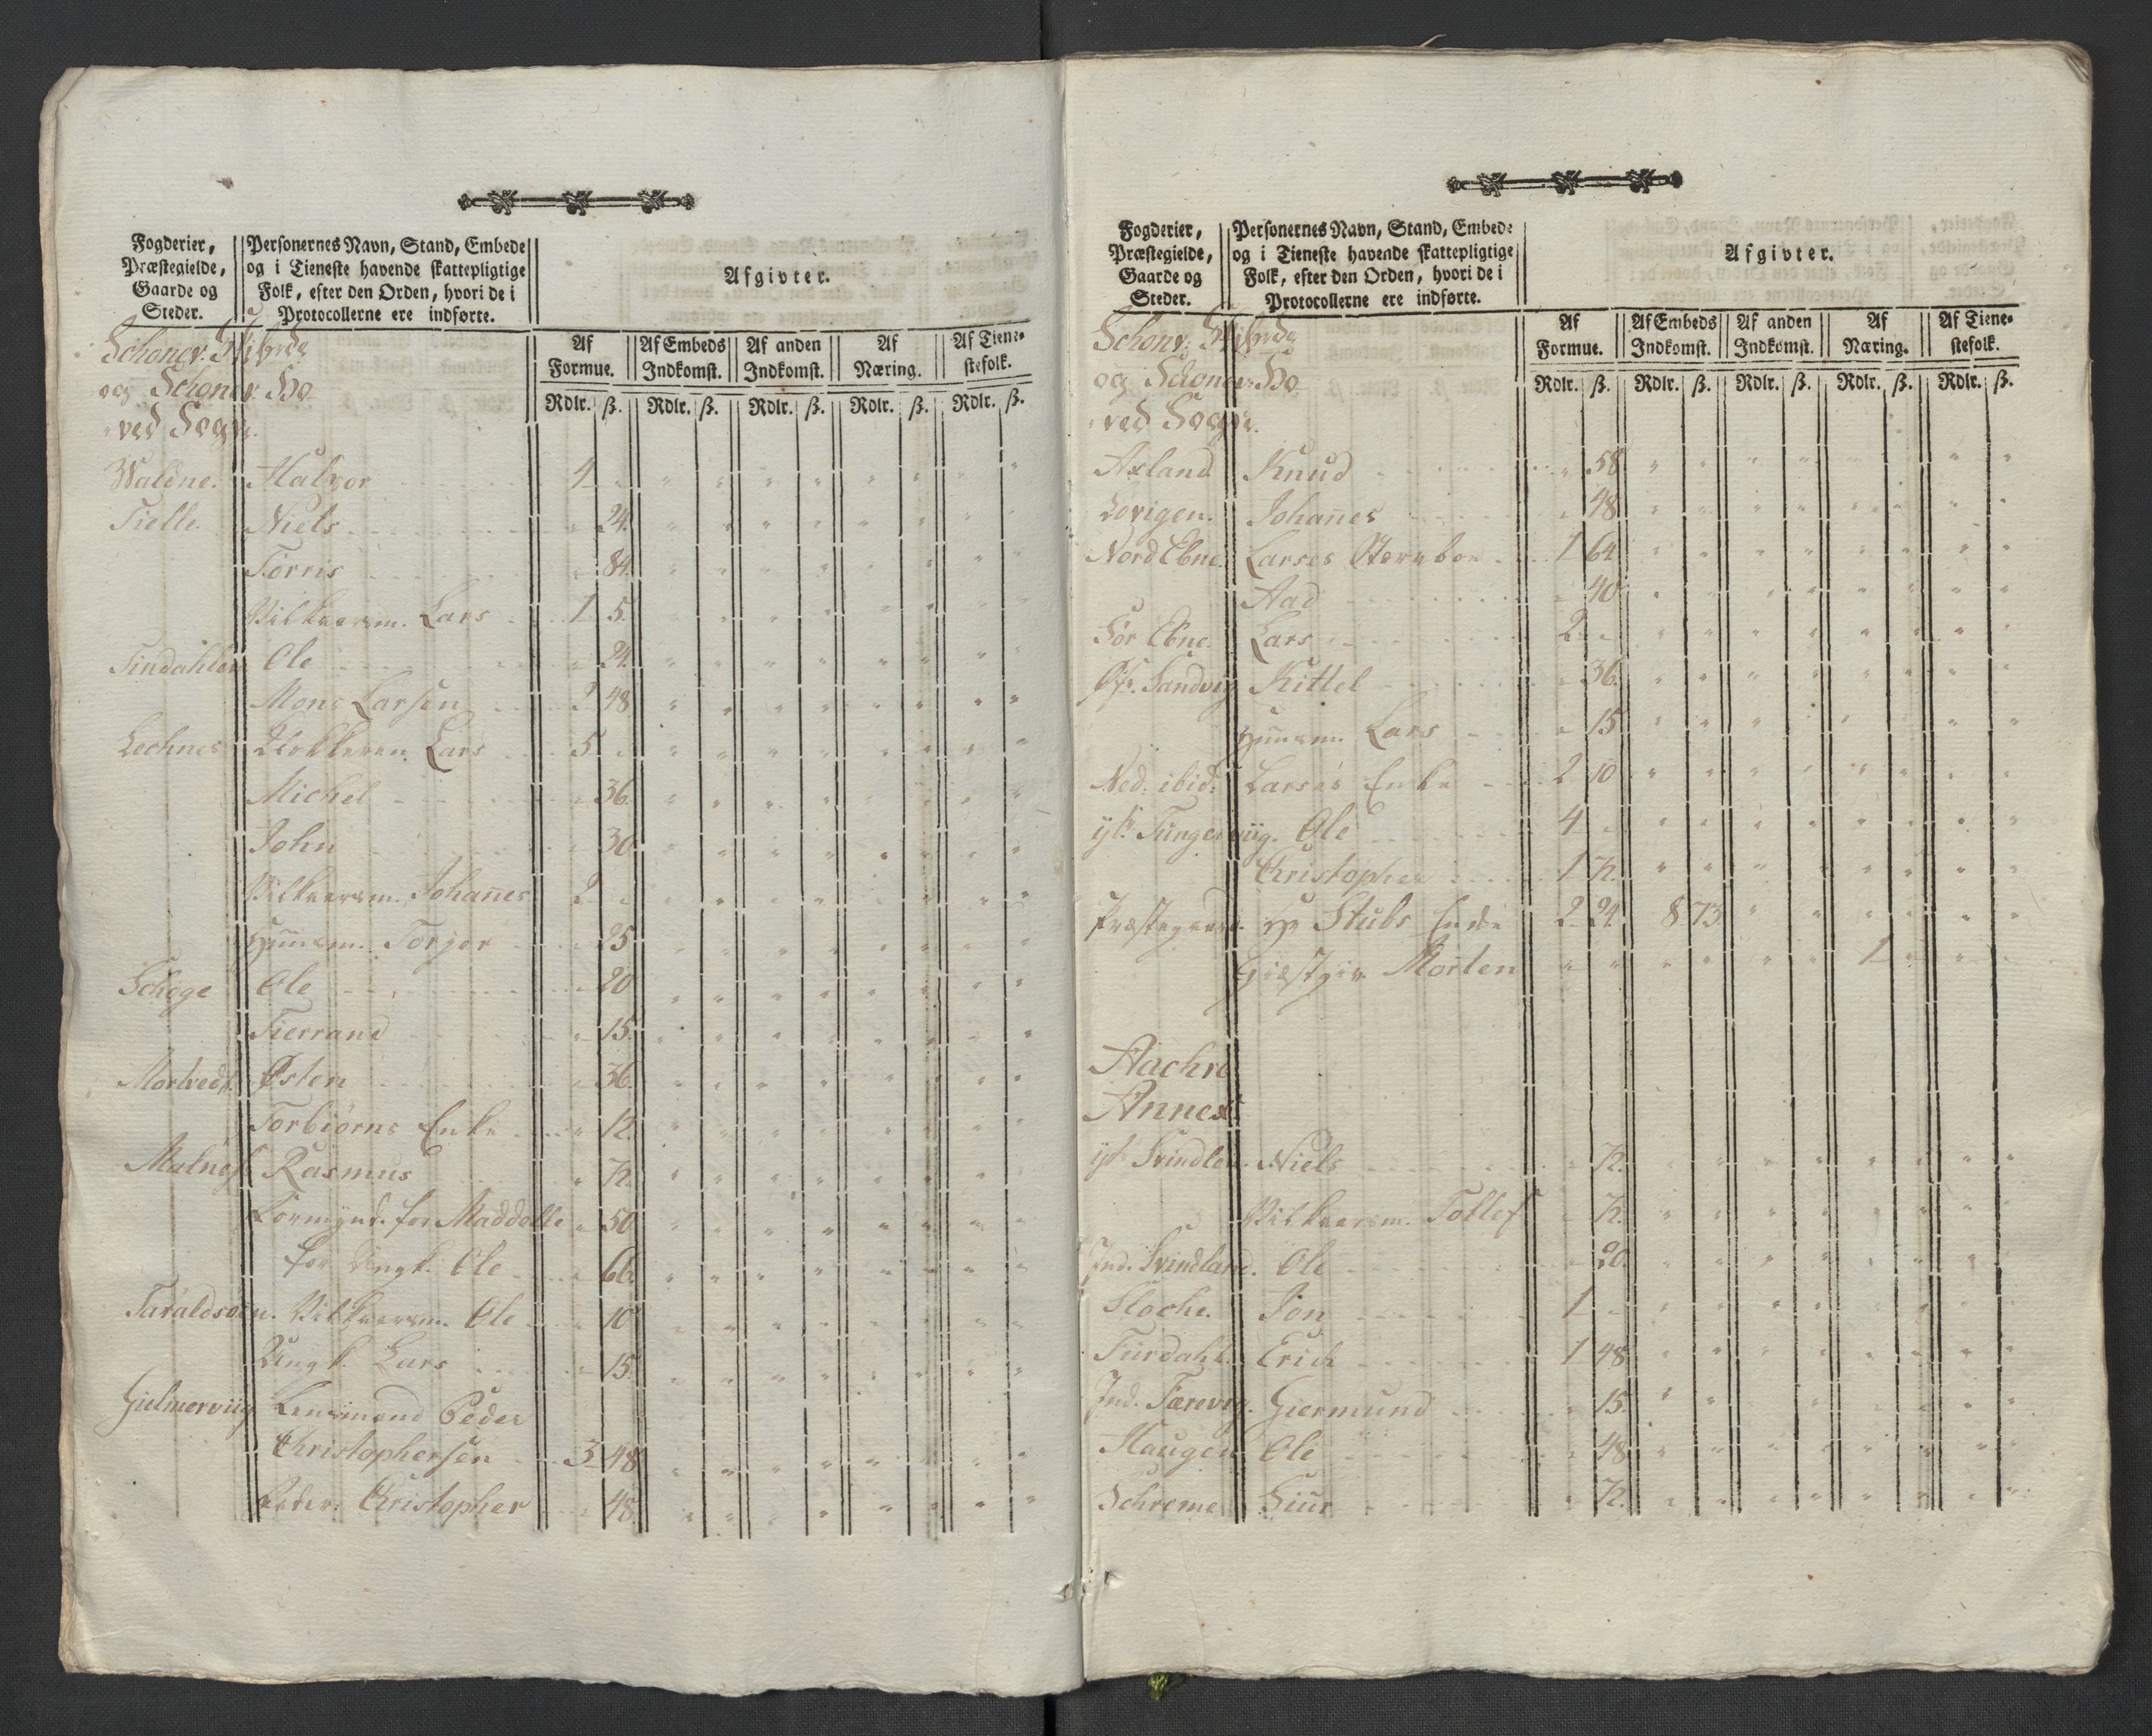 Fogderier,
Præstegielde,
Gaarde og
Steder.
Personernes Navn, Stand, Embede
og i Tieneste havende skattepligtige
Folk, efter den Orden, hvori de i
Protocollerne ere indførte.
Afgivter.
Af Formue.
Af Embeds Indkomst.
Af anden Indkomst.
Af Næring.
Af Tiene- stefolk.
Rdlr. ß. Rdlr. ß. Rdlr. ß. Rdlr. ß. Rdlr. ß.
Schonev:
og Schonev: Ho
ved Sogn.
Waldne. Halvor 4 "
Tielle. Niels " 24.
Torris " 84.
Vilkaarsm. Lars 1 5.
Tindahlen Ole " 24.
Mons Larsen 2 48
Lechnes Klokkeren Lars 5 "
Michel " 36.
John " 30.
Vilkaarsm. Johanes 2 "
Huusm. Torjer " 25
Schoge Ole " 20
Tierrand " 15.
Mortvedt. Østen " 36.
Torbiørns Enke " 12.
Malnes Rasmus " 72.
Formynd. for Maddelle " 50
for Ungk. Ole " 66.
Taraldsøen. Vilkaarsm. Ole " 10
Ungk. Lars " 15.
Gielmerviig Lensmand Peder
Christophersen 3 48
Christopher " 48.
Fogderier,
Præstegielde,
Gaarde og
Steder.
Personernes Navn, Stand, Embede
og i Tieneste havende skattepligtige
Folk, efter den Orden, hvori de i
Protocollerne ere indførte.
Afgivter.
Af Formue.
Af Embeds Indkomst.
Af anden Indkomst.
Af Næring.
Af Tiene- stefolk.
Rdlr. ß. Rdlr. ß. Rdlr. ß. Rdlr. ß. Rdlr. ß.
Schonv:
og Schonev: Ho
ved Sogn.
Axland Knud " 58
Løvigen. Johanes " 48
Nord Ebne. Larses 1 64
Aad " 40
Sør Ebne. Lars 2 "
Øfr. Sandvig Kittel " 36.
Huusm. Lars " 15
Ned. ibid: Larses Enke 2 10
ytr. Tungesviig. Ole 4 "
Christopher 1 72.
Præstegaard. Hr Stubs Enke 2 24. 8 73
Giæstgiv. Morten " " " " " " 1
Aachre
Annex
ytr. Svindlan. Niels " 72.
Vilkaarsm. Tollef " 72.
Ind. Svindland. Ole " 20.
Sloche. Jon 1 "
Tiirdahl. Erich 1 48
Ind. Færevig. Giermund " 15.
Haugen Ole " 48
Schreme Siur " 72.